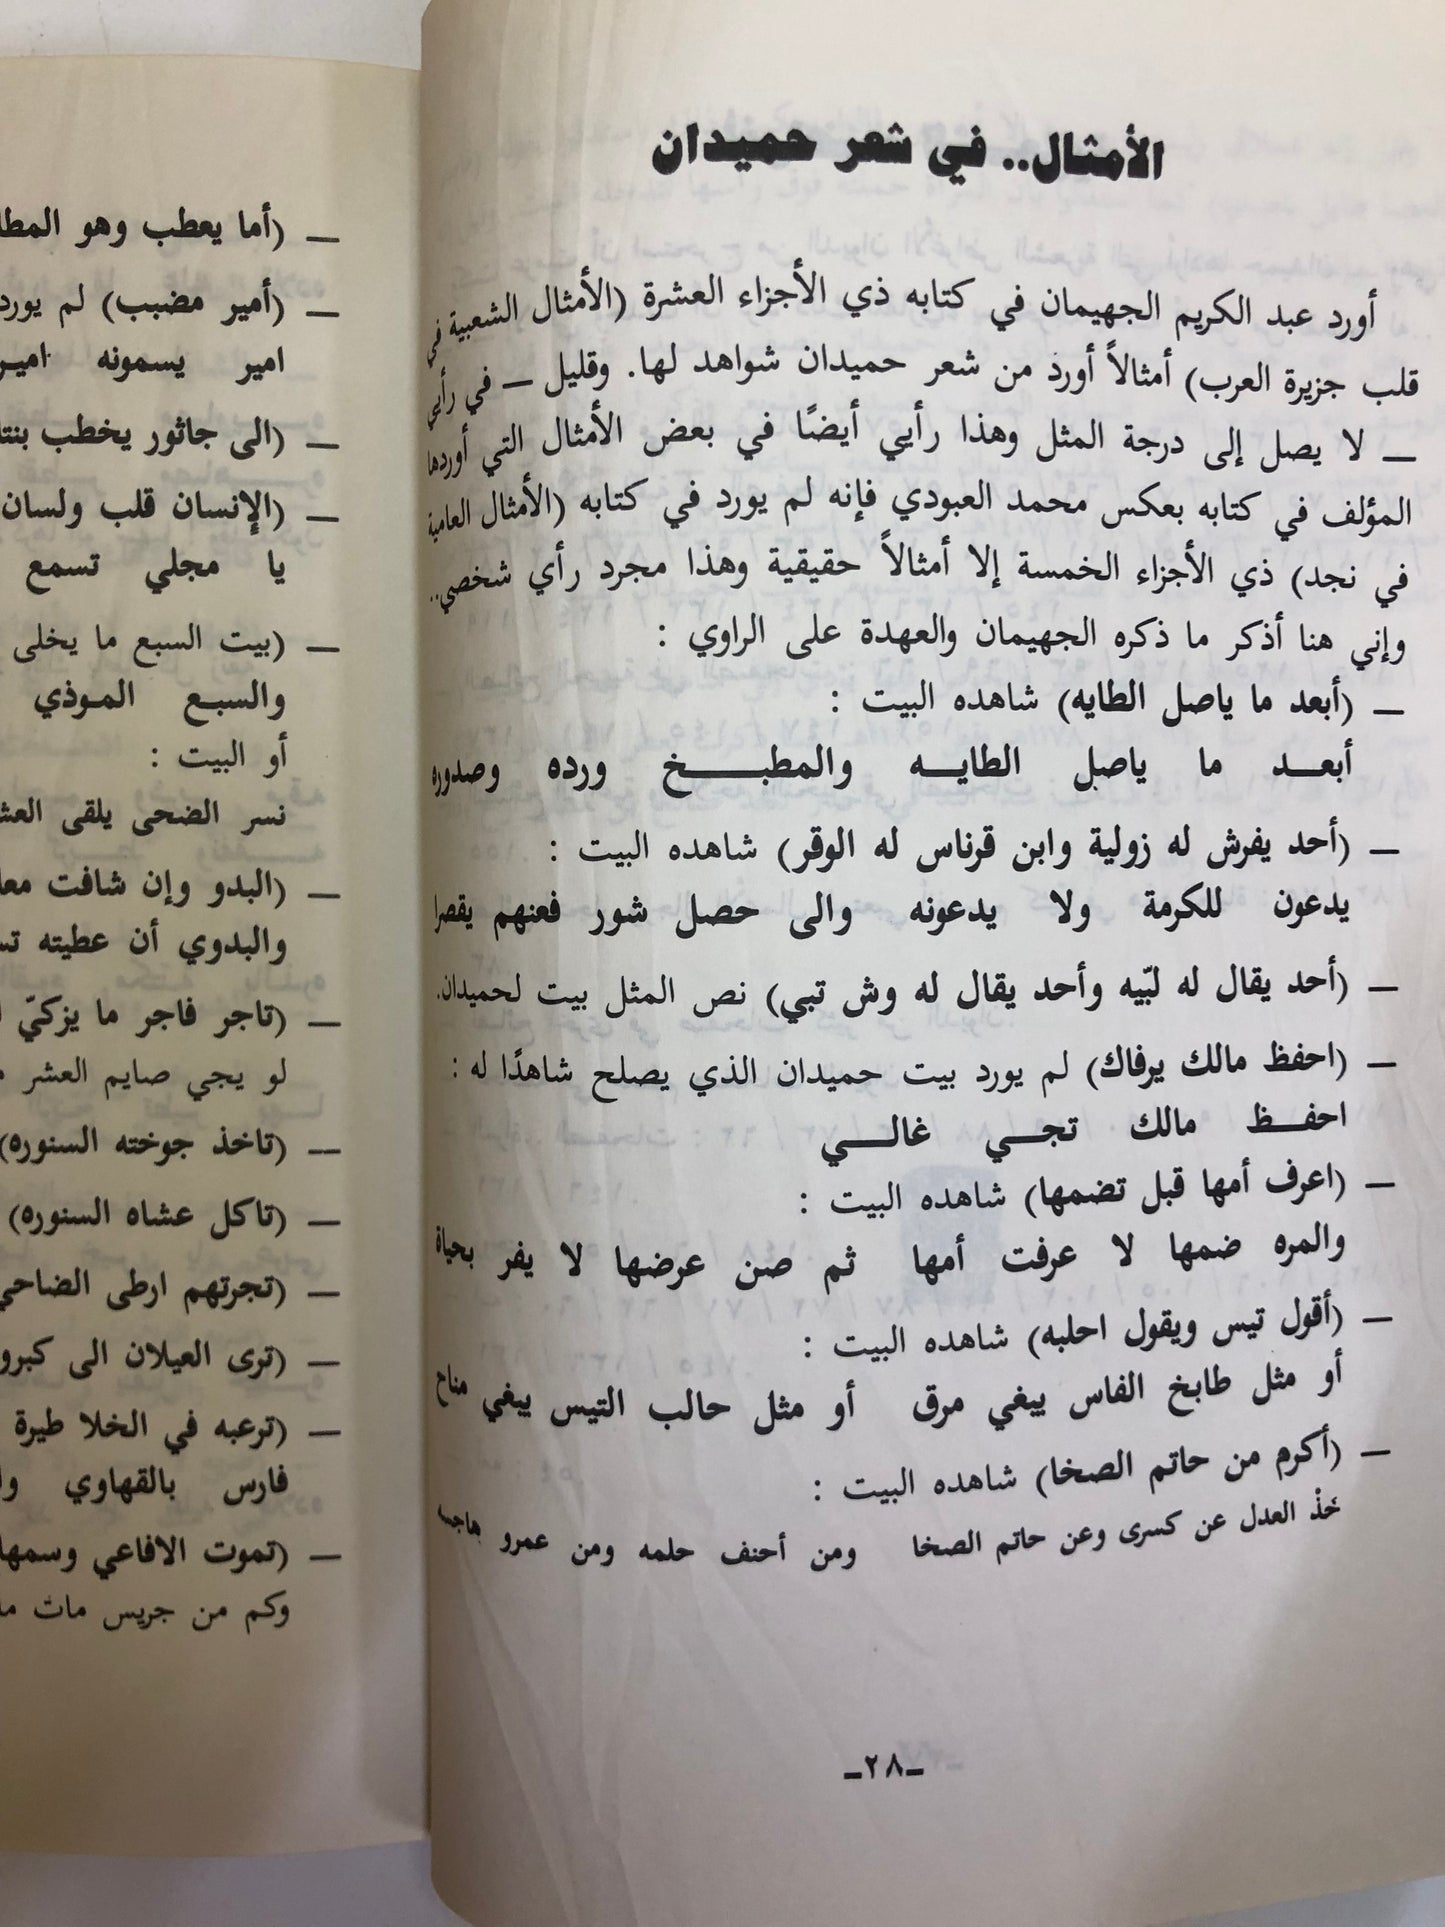 الأمثال.. في شعر حميدان
أورد عبد الكريم الجهيمان في كتابه ذي الأجزاء العشرة (الأمثال الشعبية في
قلب جزيرة العرب) أمثالاً أورد من شعر حميدان شواهد لها. وقليل ــ في رأيي
ــ لا يصل إلى درجة المثل وهذا رأيي أيضًا في بعض الأمثال التي أوردها
المؤلف في كتابه بعكس محمد العبودي فإنه لم يورد في كتابه (الأمثال العامية
في نجد) ذي الأجزاء الخمسة إلا أمثالاً حقيقية وهذا مجرد رأي شخصي..
وإني هنا أذكر ما ذكره الجهيمان والعهدة على الراوي :
ــ (أبعد ما ياصل الطايه) شاهده البيت :
أبعد ما ياصل الطايه والمطبخ ورده وصدوره
ــ (أحد يفرش له زولية وابن قرناس له الوقر) شاهده البيت :
يدعون للكرمة ولا يدعونه والى حصل شور فعنهم يقصرا
ــ (أحد يقال له لبّيه وأحد يقال له وش تبي) نص المثل بيت لحميدان.
ــ (احفظ مالك يرفاك) لم يورد بيت حميدان الذي يصلح شاهدًا له :
احفظ مالك تجي غالي
ــ (اعرف أمها قبل تضمها) شاهده البيت :
والمره ضمها لا عرفت أمها ثم صن عرضها لا يفر بحياة
ــ (أقول تيس ويقول احلبه) شاهده البيت :
أو مثل طابخ الفاس يبغي مرق أو مثل حالب التيس يبغي مناح
ــ (أكرم من حاتم الصخا) شاهده البيت :
خذْ العدل عن كسرى وعن حاتم الصخا ومن أحنف حلمه ومن عمرو هاجسه
ـ٢٨ـ
ــ (أما يعطب وهو
ــ (أمير مضبب) لم يورد
امير يسمونه
ــ (الى جاثور يخطب
ــ (الإنسان قلب ولسان
يا مجلي تسمع
ــ (بيت السبع ما يخلى
والسبع الموذي
أو البيت :
نسر الضحى يلقى
ــ (البدو وإن شافت
والبدوي أن عطيته
ــ (تاجر فاجر ما يزكيّ
لو يجي صايم العشر
ــ (تاخذ جوخته السنوره)
ــ (تاكل عشاه السنوره)
ــ (تجرتهم ارطى
ــ (ترى العيلان الى
ــ (ترعبه في الخلا طيرة
فارس بالقهاوي
ــ (تموت الافاعي
وكم من جريس مات